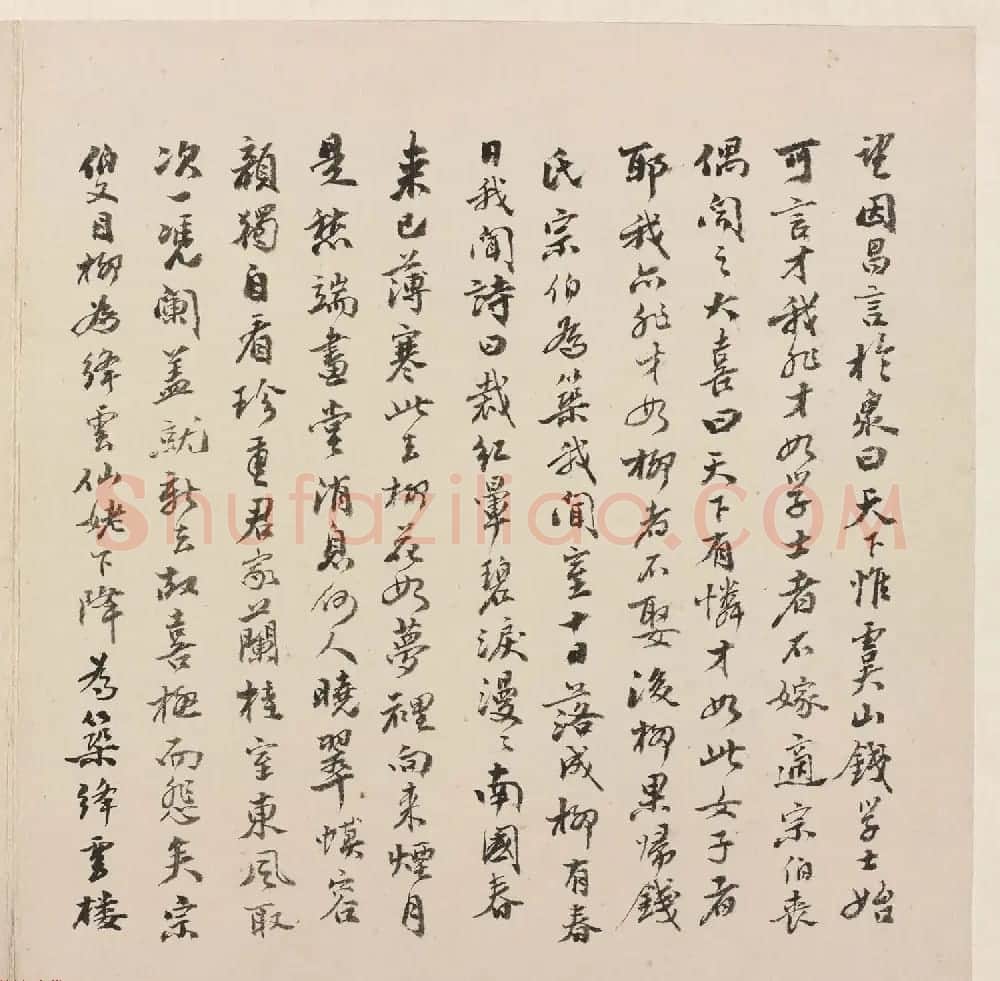 望因昌言於衆曰天下惟虞山錢学士始
可言才我非才如学士者不嫁適宗伯丧
偶闻之大喜曰天下有憐才如此女子者
耶我亦非才如柳者不娶後柳果帰錢
氏宗伯為築我闻室十日落成柳有春
日我闻詩曰裁红暈碧淚漫〻南國春
来已薄寒此去柳花如夢裡向来煙月
是愁端畫堂消息何人曉翠幙容
顏獨自看珍重君家蘭桂室東風取
次一凭闌盖就新去故喜極而怨矣宗
伯又目柳為绛雲仙姥下降為築绛雲楼
Shufaziliao.COM